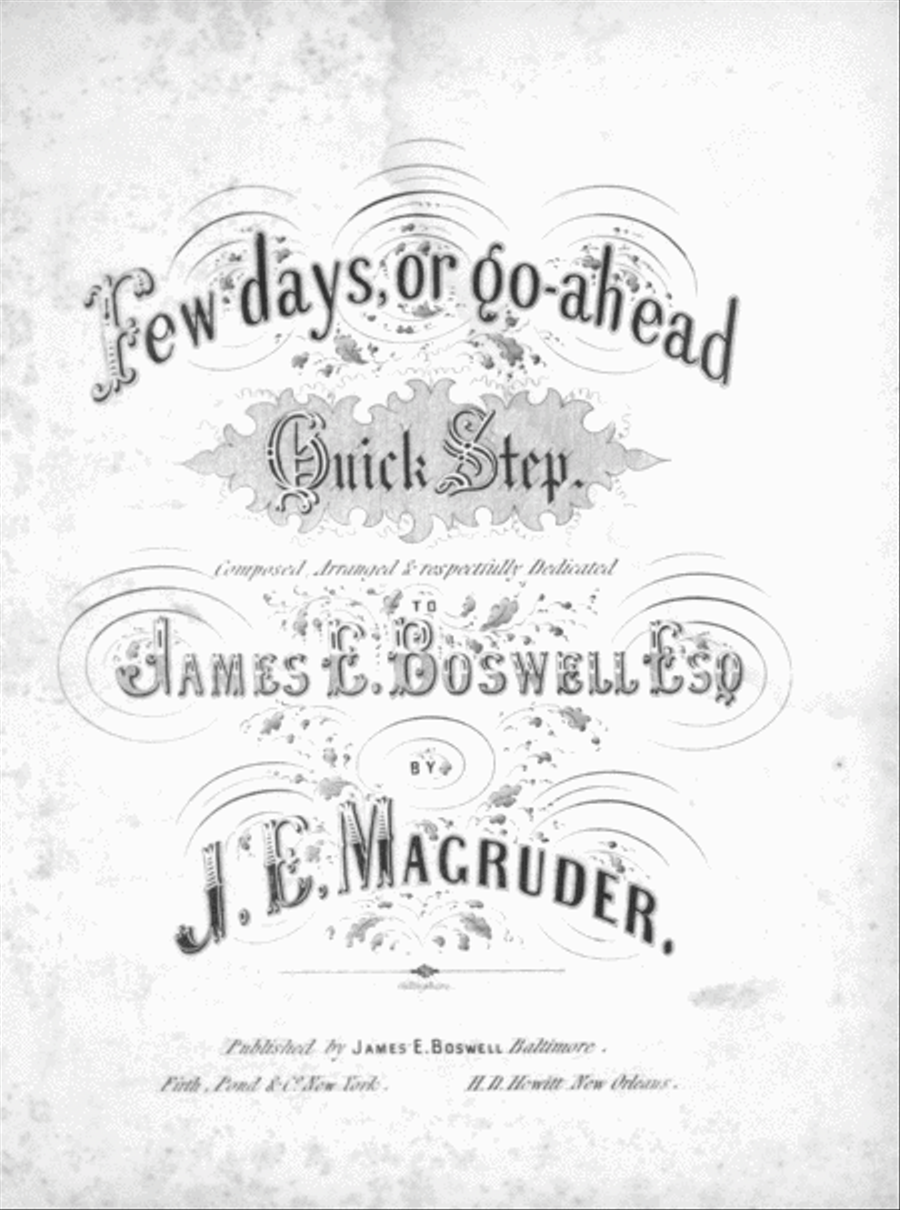 Few days, or go-ahead
Quick Step.
Composed, Arranged & respectfully Dedicated
TO
JAMES E. BOSWELL ESQ
BY
J. E. MAGRUDER.
Published by JAMES E. BOSWELL Baltimore.
Firth, Pond & Co. New York. H. D. Hewitt New Orleans.